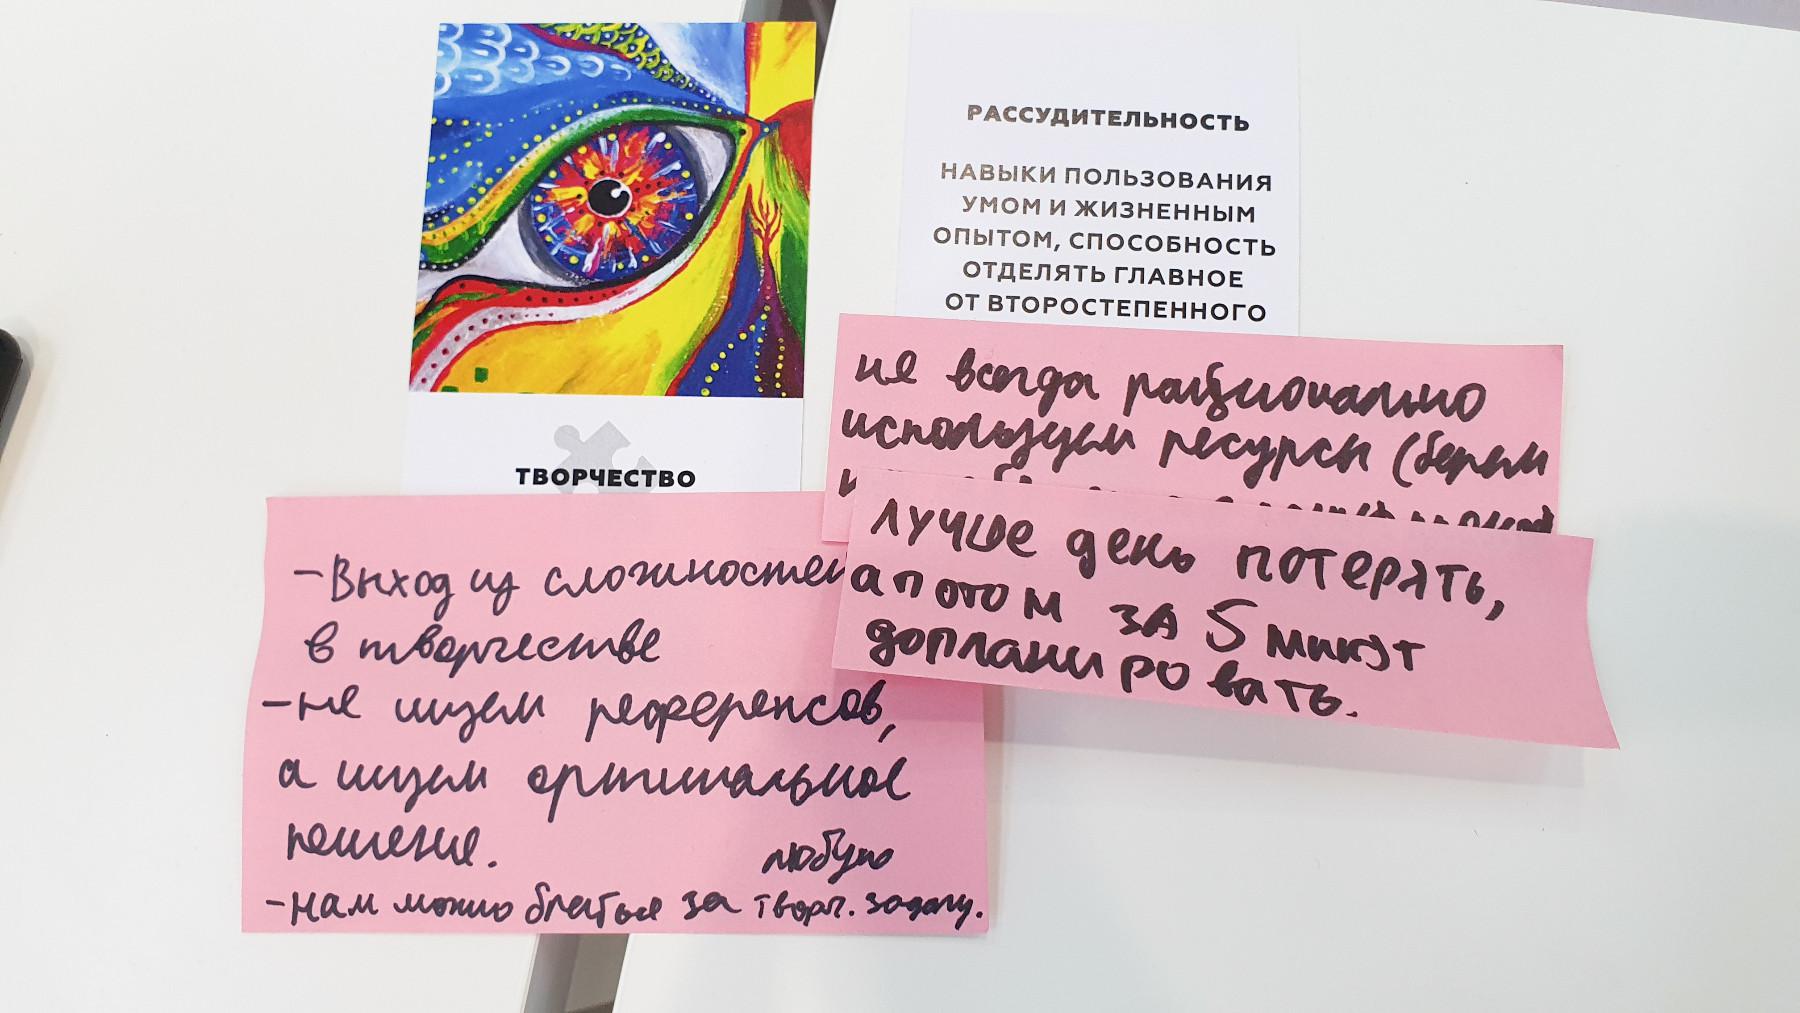 ТВОРЧЕСТВО
- Выход из сложностей
в творчестве
- не ищем референсов,
а ищем оригинальное
решение.
любую
- нам можно браться за творч. задачу.
РАССУДИТЕЛЬНОСТЬ
НАВЫКИ ПОЛЬЗОВАНИЯ
УМОМ И ЖИЗНЕННЫМ
ОПЫТОМ, СПОСОБНОСТЬ
ОТДЕЛЯТЬ ГЛАВНОЕ
ОТ ВТОРОСТЕПЕННОГО
не всегда рационально
используем ресурсы (берем
лучше день потерять,
а потом за 5 минут
допланировать.